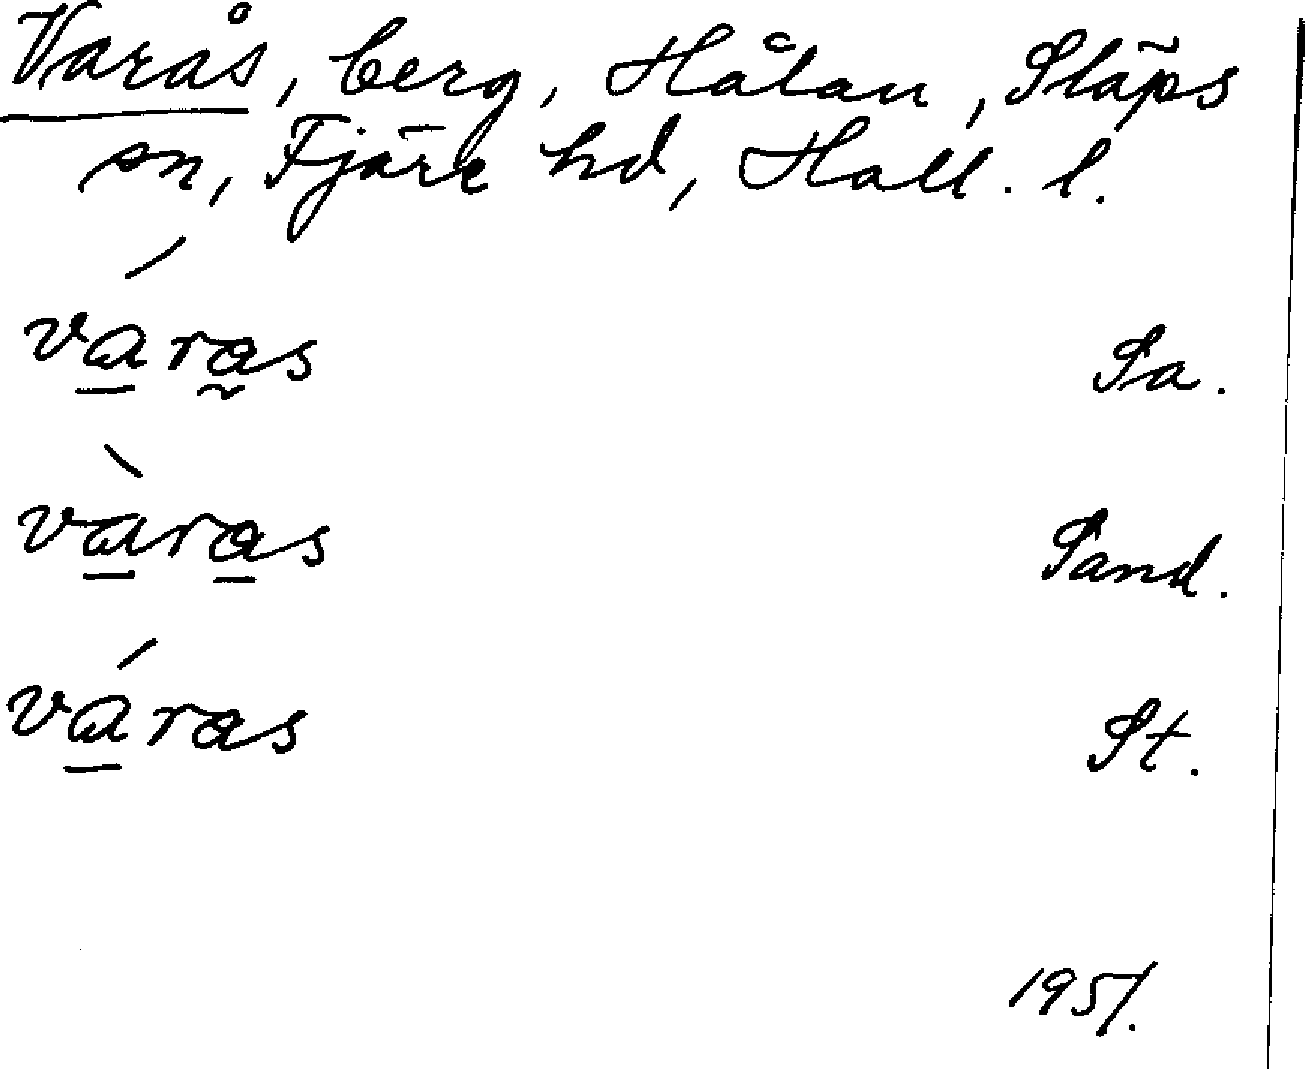 Varås, berg, Hålan, Släps
sn, Fjäre hd, Hall. l.
váras Sa.
vàras Sand.
váras St.
1951.